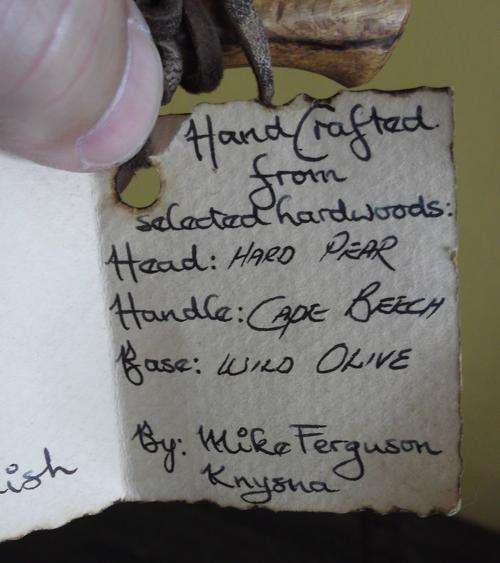 HandCrafted
from
selected hardwoods:
Head: HARD PEAR
Handle: CAPE BEECH
Base: WILD OLIVE
By: Mike Ferguson
Knysna
ish